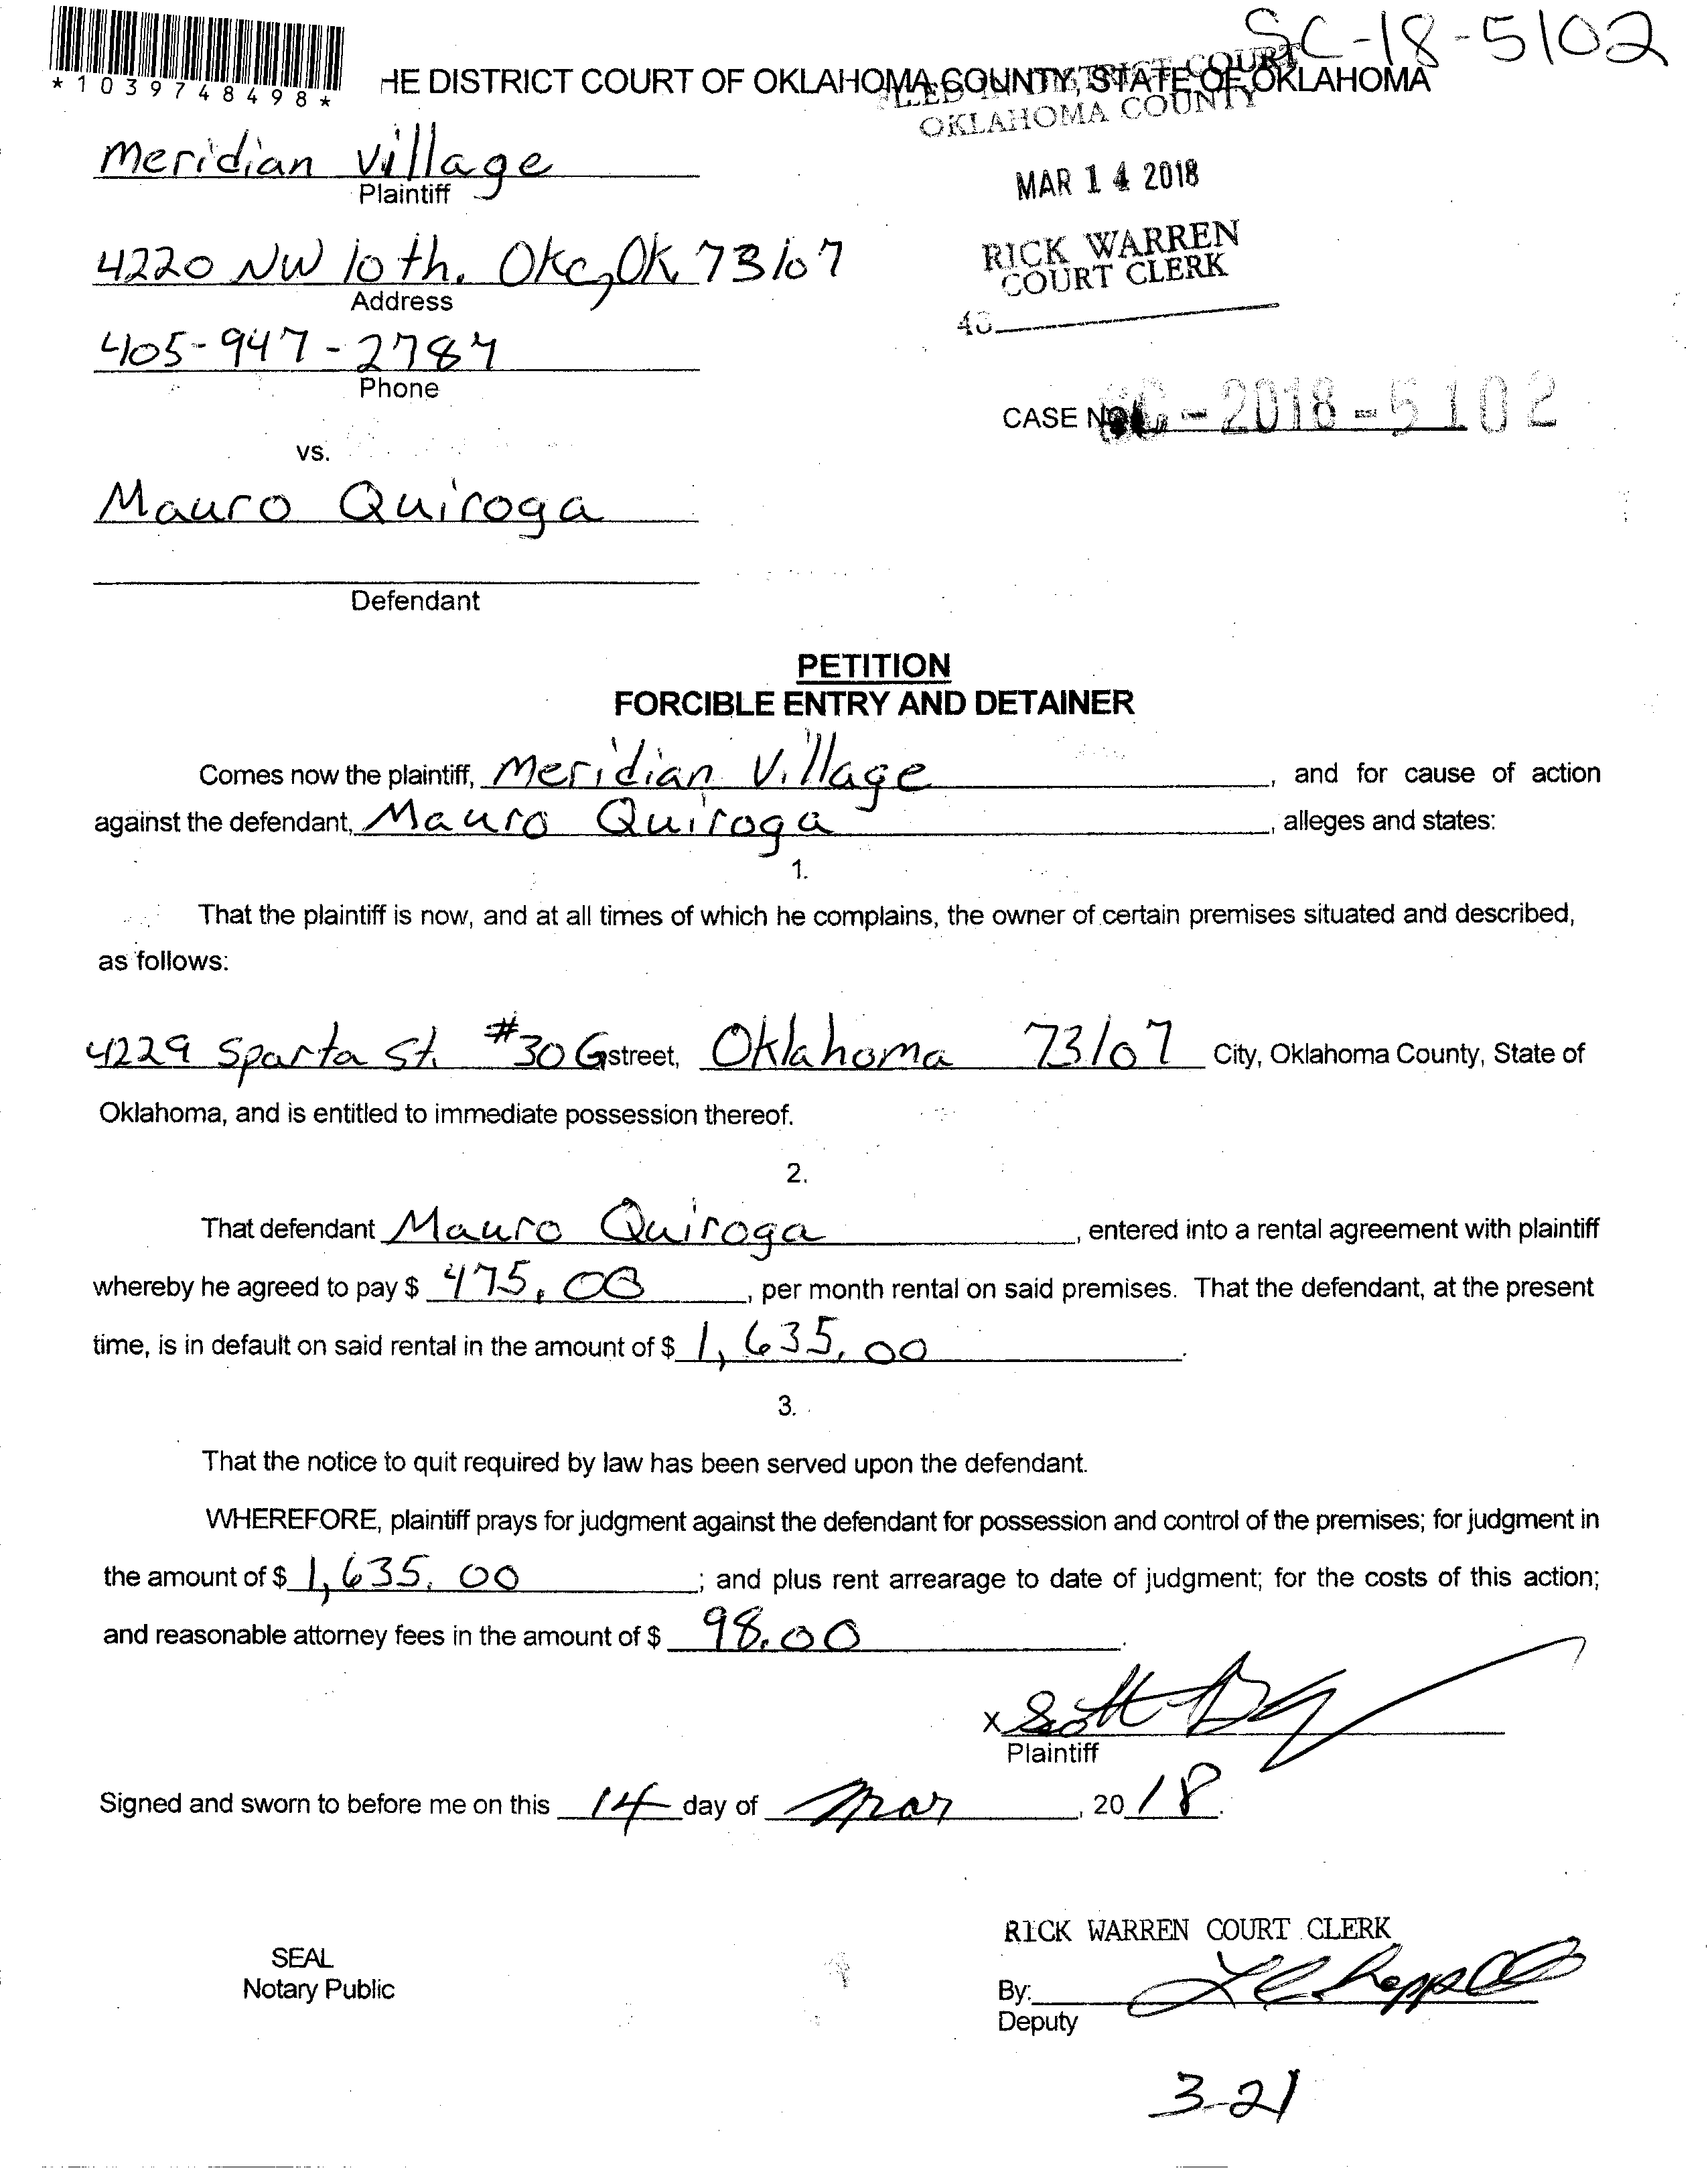 SC-18-5102
*1039748498*
HE DISTRICT COURT OF OKLAHOMA COUNTY, STATE OF OKLAHOMA
FILED IN DISTRICT COURT
OKLAHOMA COUNTY
Meridian Village
Plaintiff
MAR 14 2018
4220 NW 10th. OKC, OK 73107
Address
RICK WARREN
COURT CLERK
405-947-2784
Phone
CASE NO. SC-2018-5102
vs.
Mauro Quiroga
Defendant
PETITION
FORCIBLE ENTRY AND DETAINER
Comes now the plaintiff, Meridian Village, and for cause of action
against the defendant, Mauro Quiroga, alleges and states:
1.
That the plaintiff is now, and at all times of which he complains, the owner of certain premises situated and described,
as follows:
4229 Sparta St. #30G street, Oklahoma 73107 City, Oklahoma County, State of
Oklahoma, and is entitled to immediate possession thereof.
2.
That defendant Mauro Quiroga, entered into a rental agreement with plaintiff
whereby he agreed to pay $ 475.00, per month rental on said premises. That the defendant, at the present
time, is in default on said rental in the amount of $ 1,635.00.
3.
That the notice to quit required by law has been served upon the defendant.
WHEREFORE, plaintiff prays for judgment against the defendant for possession and control of the premises; for judgment in
the amount of $ 1,635.00; and plus rent arrearage to date of judgment; for the costs of this action;
and reasonable attorney fees in the amount of $ 98.00.
X Scott
Plaintiff
Signed and sworn to before me on this 14 day of Mar, 2018.
RICK WARREN COURT CLERK
SEAL
Notary Public
By:
Deputy
3-21